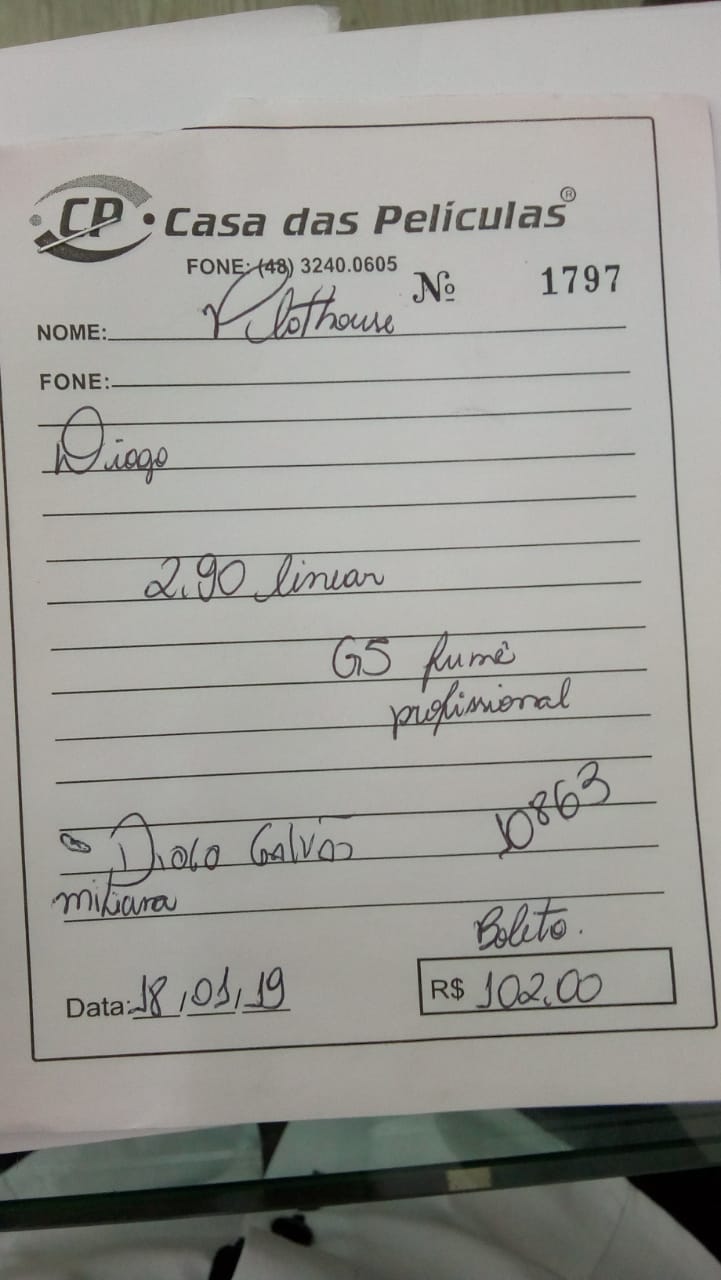 CP • Casa das Películas®
FONE: (48) 3240.0605
Nº 1797
NOME: Plothouse
FONE:
Diogo
2.90 linear
G5 fumê
profissional
Diogo Galvão
10863
Boleto.
Data: 18,01,19
R$ 102,00